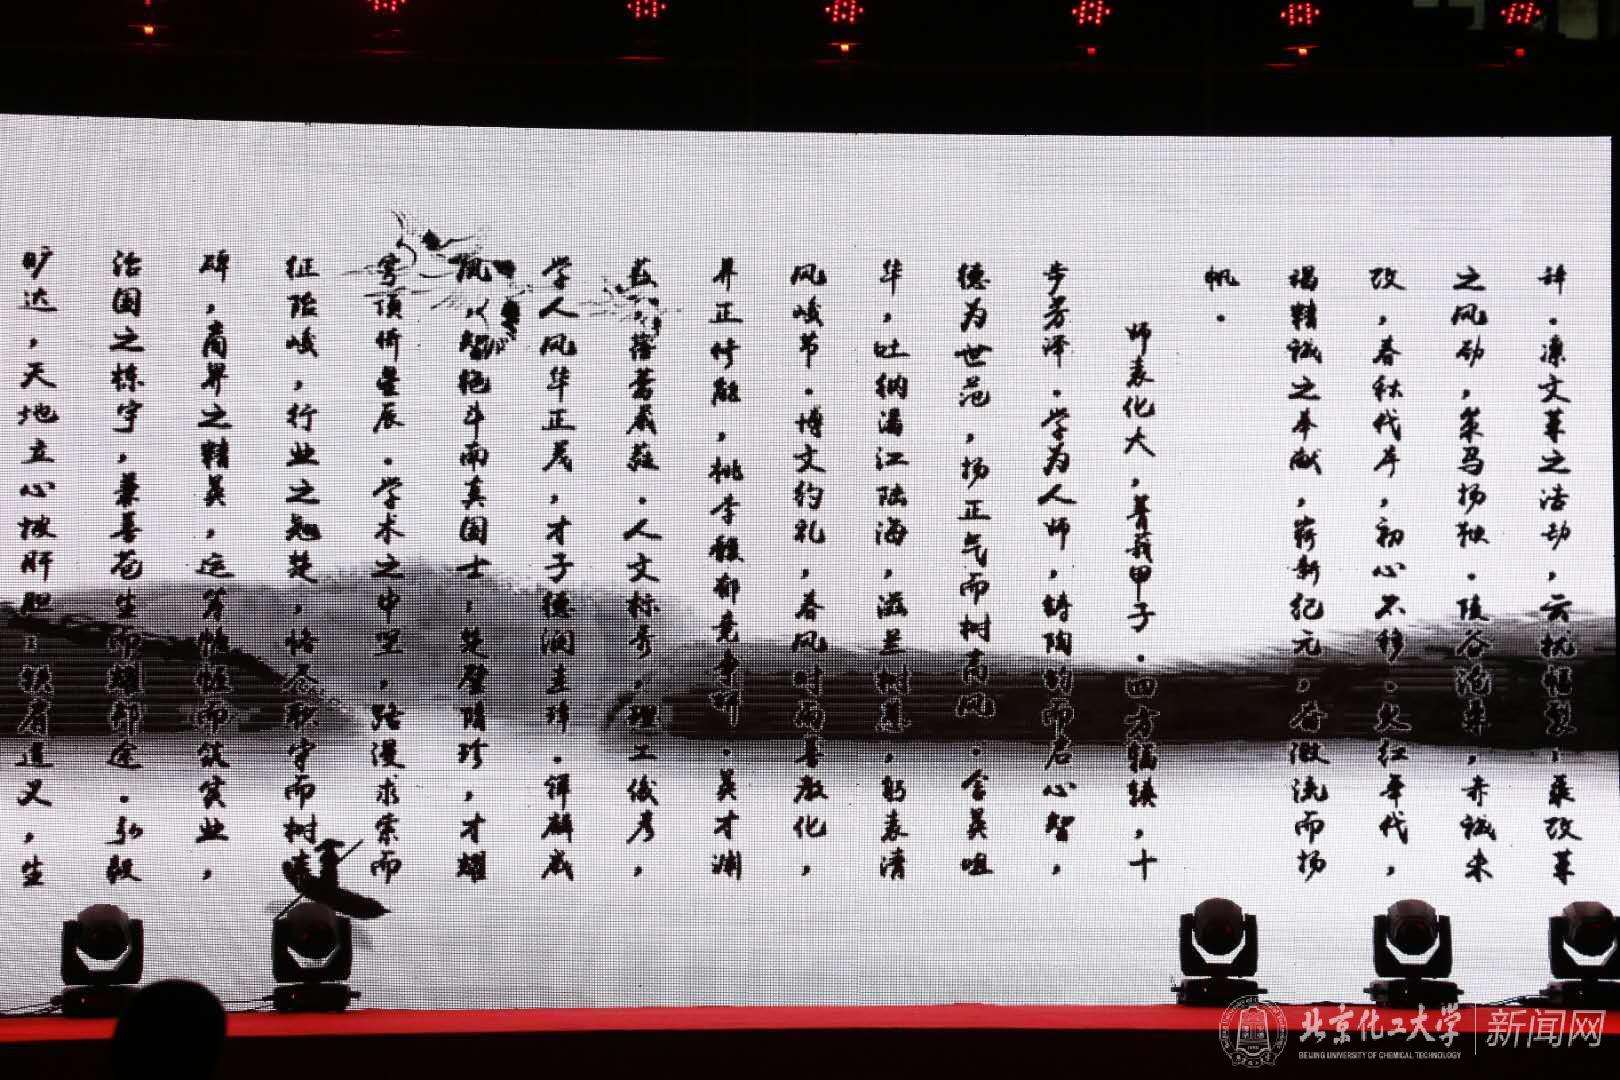 辞。凛文革之浩劫，云扰幅裂；乘改革
之风劲，策马扬鞭。陵谷沧桑，赤诚未
改，春秋代序，初心不移。火红年代，
竭精诚之奉献，崭新纪元，奋激流而扬
帆。
师表化大，菁莪甲子。四方辐辏，十
步芳泽。学为人师，铸陶钧而启心智，
德为世范，扬正气而树高风。含英咀
华，吐纳潘江陆海，滋兰树蕙，彰表清
风峻节。博文约礼，春风时雨善教化，
正修融，桃李馥郁竞争妍。英才渊
薮，蓓蕾葳蕤。人文标秀，理工俊彦，
学人风华正茂，才子德润圭璋。麟威
凤，智绝斗南真国士，楚璧隋珍，才耀
穹顶侪星辰。学术之中坚，路漫求索而
征陟峻，行业之翘楚，恪尽职守而树
碑，商界之精英，运筹帷幄而筑实业，
治国之栋宇，兼善苍生而耀途。弘毅
旷达，天地立心披肝胆；铁肩道义，生
北京化工大学 新闻网
BEIJING UNIVERSITY OF CHEMICAL TECHNOLOGY